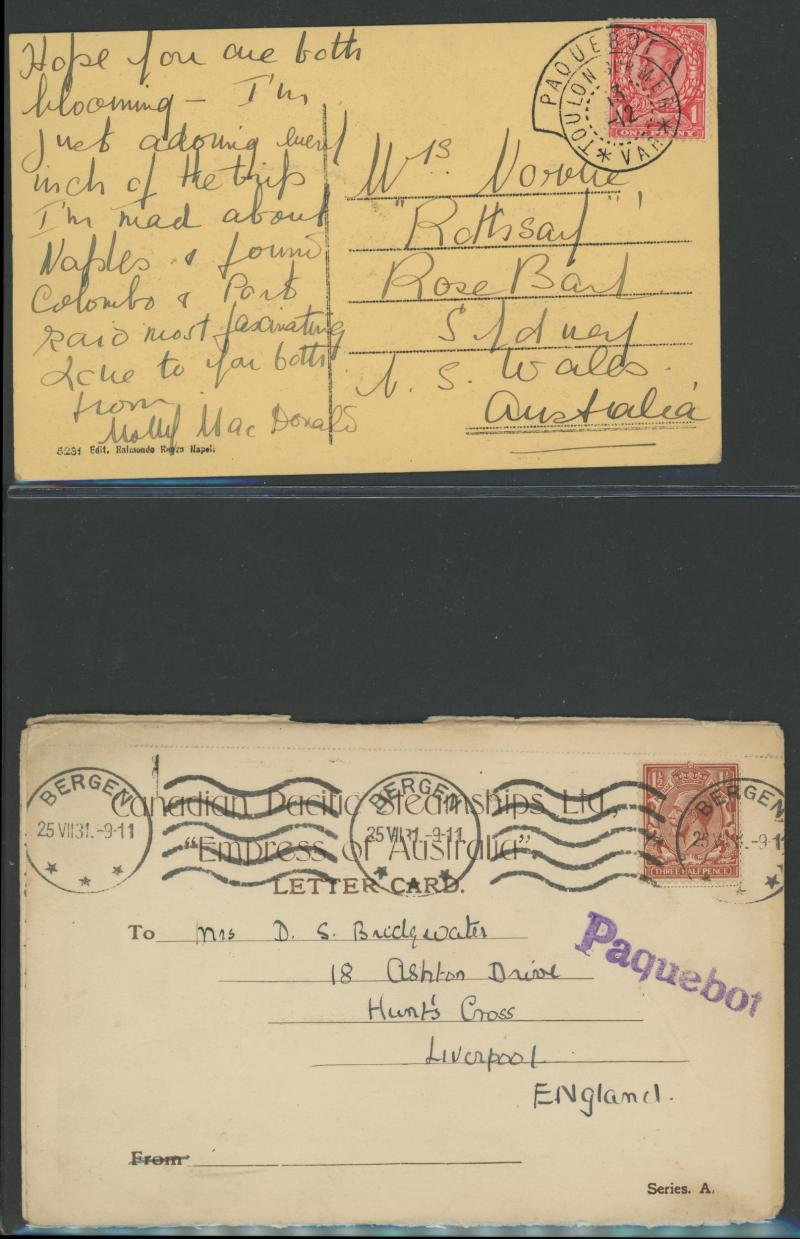 Hope you are both
blooming – I'm
just adoring every
inch of the trip
I'm mad about
Naples & found
Colombo & Port
Said most fascinating
Love to you both
from
Molly MacDonald
5231 Edit. Raimondo Napoli
PAQUEBOT
TOULON SUR MER
13
-12
* VAR *
ONE PENNY
Mrs
"Rothsay"
Rose Bay
Sydney
N. S. Wales
Australia
BERGEN
25 VII 31.-9-11
BERGEN
25 VII 31.-9-11
BERGEN
1½ 1½
THREE HALFPENCE
Canadian Pacific Steamships Ltd.,
"Empress of Australia".
LETTER CARD.
To Mrs D. S. Bridgwater
18 Ashton Drive
Hunt's Cross
Liverpool
ENgland.
Paquebot
From
Series. A.